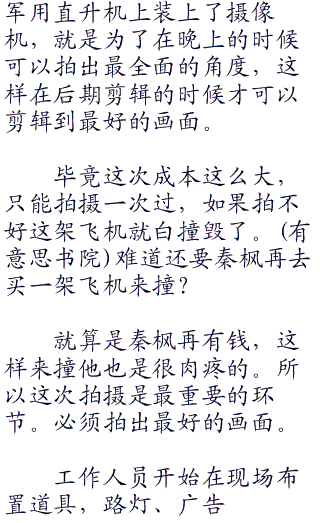 军用直升机上装上了摄像
机，就是为了在晚上的时候
可以拍出最全面的角度，这
样在后期剪辑的时候才可以
剪辑到最好的画面。
毕竟这次成本这么大，
只能拍摄一次过，如果拍不
好这架飞机就白撞毁了。(有
意思书院)难道还要秦枫再去
买一架飞机来撞？
就算是秦枫再有钱，这
样来撞他也是很肉疼的。所
以这次拍摄是最重要的环
节。必须拍出最好的画面。
工作人员开始在现场布
置道具，路灯、广告